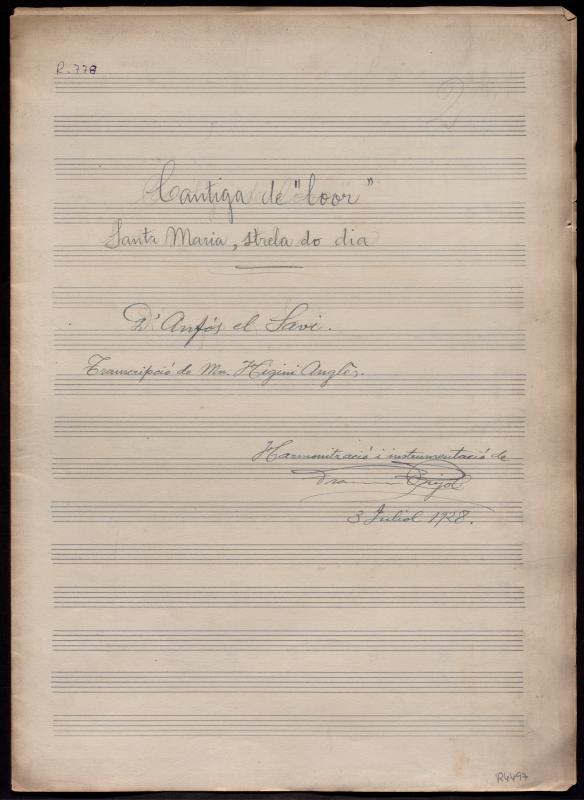 R. 778
2
Cantiga de "loor"
Santa Maria, strela do dia
D'Anfós el Savi.
Transcripció de Mn. Higini Anglès.
Harmonització i instrumentació de
Pujol
3 Juliol 1928.
R4497